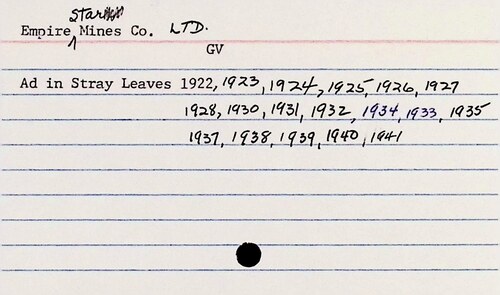 Empire Star Mines Co. LTD.
GV
Ad in Stray Leaves 1922, 1923, 1924, 1925, 1926, 1927
1928, 1930, 1931, 1932, 1934, 1933, 1935
1937, 1938, 1939, 1940, 1941